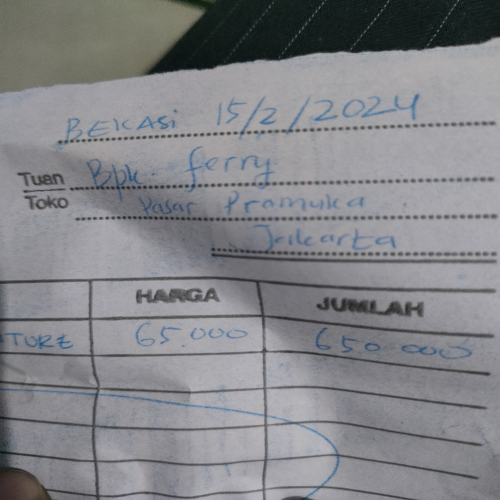 BEKASi 15/2/2024
Tuan Bpk. ferry
Toko Pasar Pramuka
Jakarta
HARGA JUMLAH
TURE 65.000 650.000